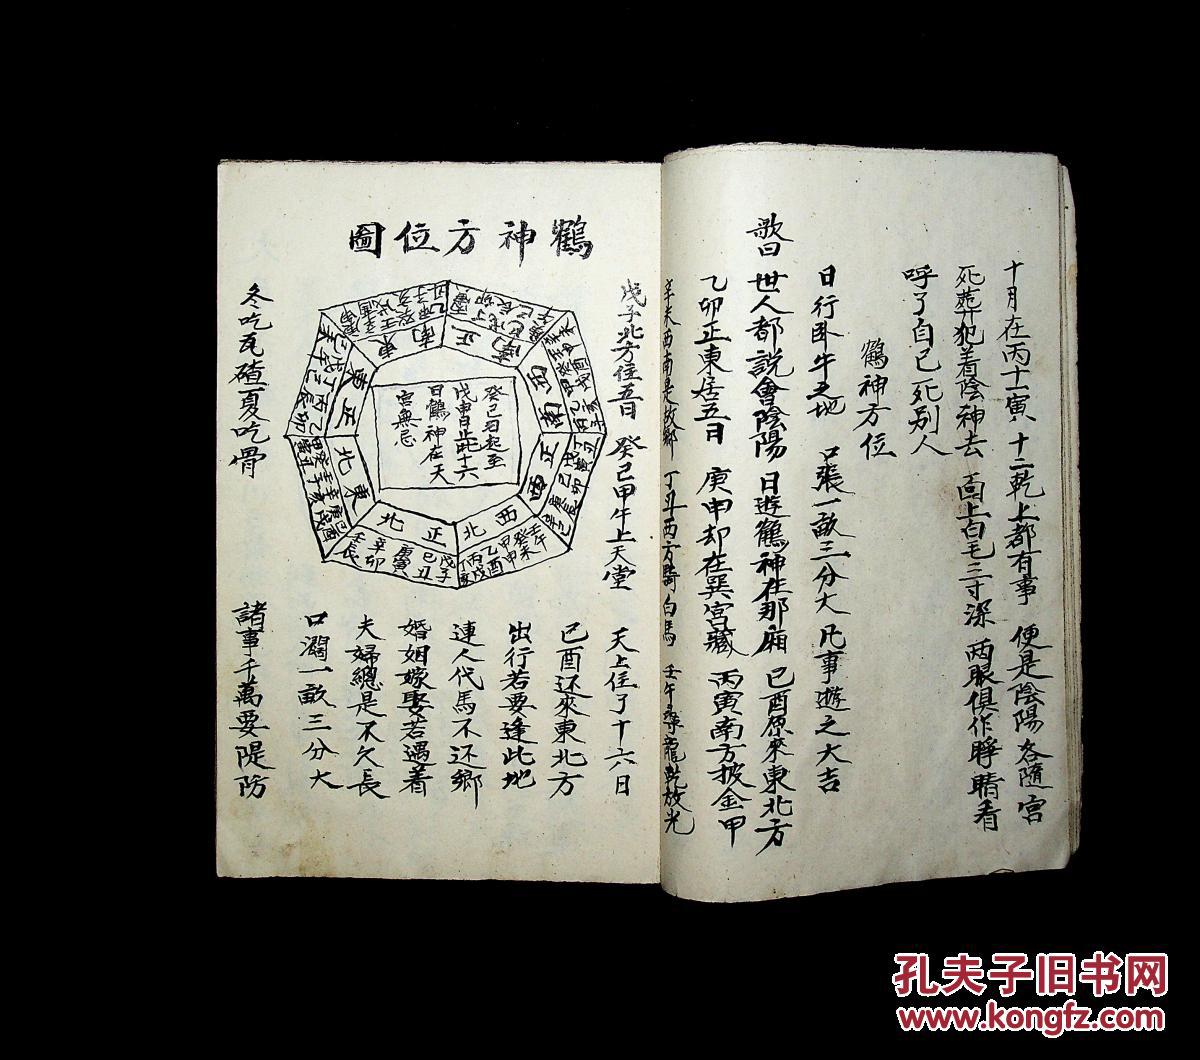 十月在丙十一寅 十二乾上都有事 便是陰陽各隨宮
死葬犯着陰神去 面上白毛三寸深 两眼俱作睜睛看
呼了自己死别人
鶴神方位
日行卧牛之地 口張一畝三分大 凡事遊之大吉
歌曰 世人都説會陰陽 日遊鶴神在那廂 己酉原來東北方
乙卯正東居五日 庚申却在巽宮藏 丙寅南方披金甲
辛未西南是故鄉 丁丑西方騎白馬 壬午尋龍乾放光
戊子北方位五日 癸己甲午上天堂 天上住了十六日
鶴神方位圖
癸己日起至
戊申日止此十六
日鶴神在天
宮無忌
正南
西南
正西
西北
正北
東北
正東
東南
戊子
己丑
庚寅
辛卯
壬辰
壬午
癸未
甲申
乙酉
丙戌
丁亥
己酉还來東北方
出行若要逢此地
連人代馬不还鄉
婚姻嫁娶若遇着
夫婦總是不久長
口濶一畝三分大
冬吃瓦碴夏吃骨 諸事千萬要隄防
孔夫子旧书网
www.kongfz.com